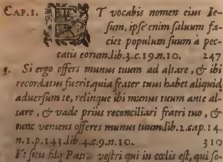 CAP. 1. ET vocabis nomen eius Ie-
sum, ipse enim saluum fa-
ciet populum suum à pec-
catis eorum. lib. 3. c. 19. n. 10. 247
5. Si ergo offers munus tuum ad altare, & ibi
recordatus fueris quia frater tuus habet aliquid
aduersum te, relinque ibi munus tuum ante al-
tare, & vade prius reconciliari fratri tuo, &
tunc veniens offeres munus tuum. lib. 2. cap. 14.
n. 1. p. 143. lib. 4. c. 9. n. 10. 310
Et sitis filij Patris vestri qui in cœlis est, qui